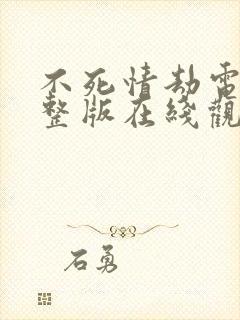 不死情劫電
整版在綫觀
石勇